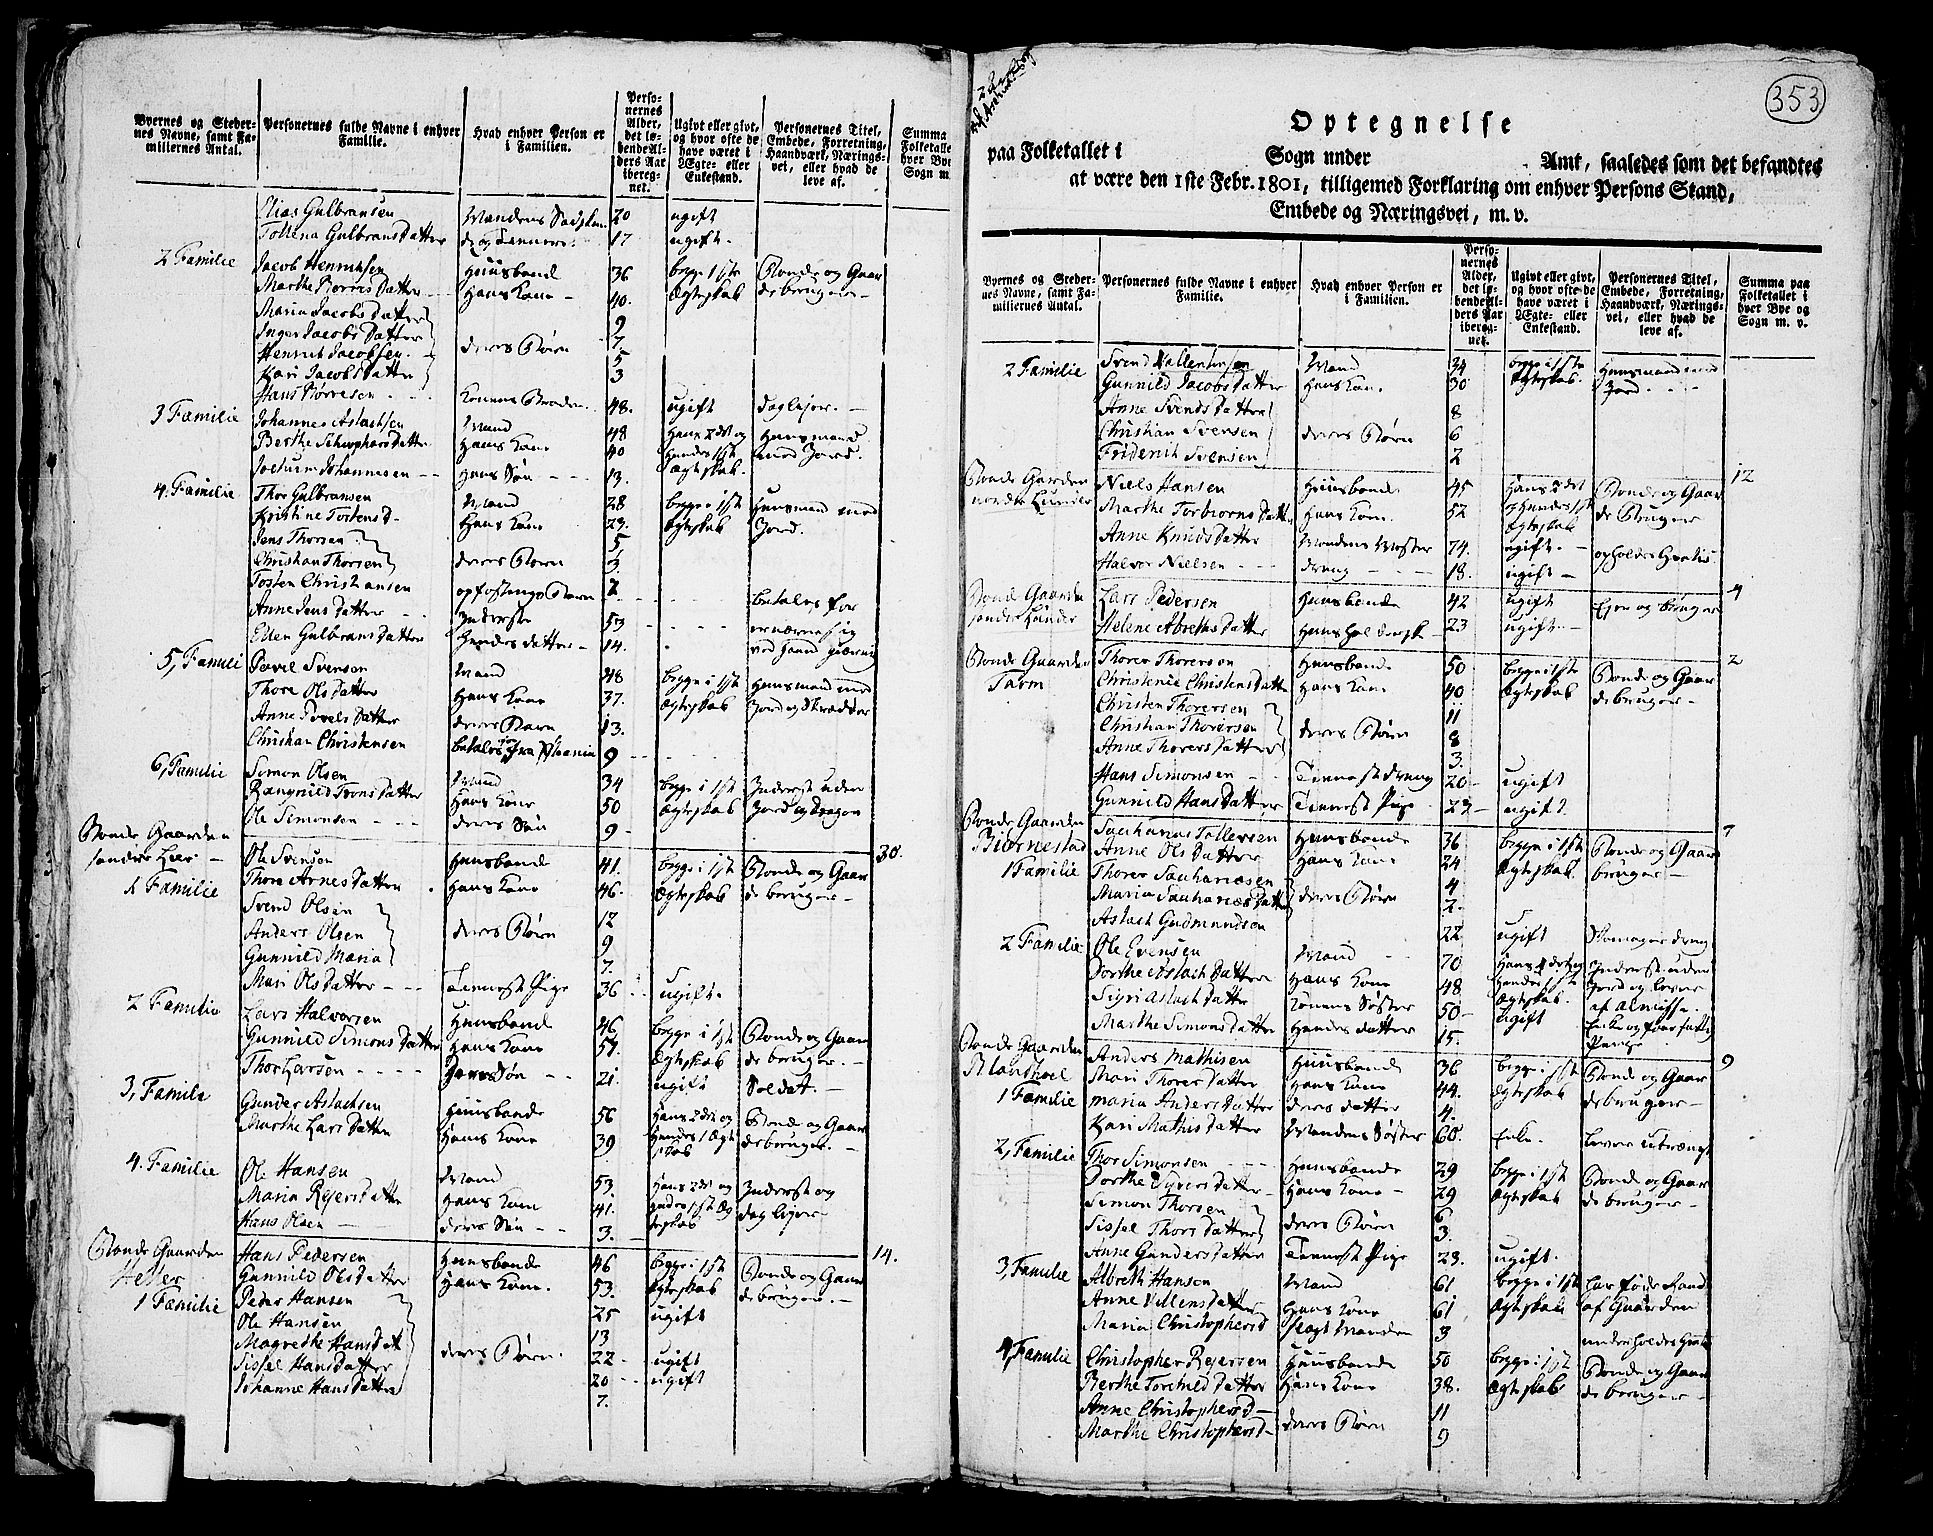 Byernes og Steder-
nes Navne, samt Fa-
milliernes Antal.
Personernes fulde Navne i enhver
Familie.
Hvad enhver Person er
i Familien.
Perso-
nernes
Alder,
det lø-
bende Al-
ders Aar
ibereg-
net.
Ugivt eller givt,
og hvor ofte de
have været i
Ægte- eller
Enkestand.
Personernes Titel,
Embede, Forretning,
Haandværk, Nærings-
vei, eller hvad de
leve af.
Summa
Folketalle
hver Bye
Sogn m.
Nias Gulbransen 20 ugift
Tollena Gulbrans Datter 17 ugift
2 Familie Jacob Henrichsen Huusbonde 36 begge i 1ste Bonde og Gaar
Marthe Børres Datter Hans Kone 40. Ægteskab debruger
Maria Jacobs Datter 9
Inger Jacobs Datter 7.
Henrich Jacobsen deres Børn 5
Kari Jacobs Datter 3
Hans Børresen Konens Broder 48. ugift daglejer
3 Familie Johannes Aslachsen Mand 48 Hans 2det og Huusmand
Berthe Datter Hans Kone 40 Hendes 1ste med Jord.
Johannesen Hans Søn 13. Ægteskab.
4. Familie Thor Gulbransen Mand 28 begge i 1ste Huusmand med
Kristine Tostensd Hans Kone 23. Ægteskab Jord.
Jens Thorsen 5
Christian Thorsen deres Børn 3.
Tosten Christiansen opfostrings Børn 2
Anne Jens Datter Inderste 53 betales for
Ellen Gulbrans Datter Hendes datter 14. ernærer sig
5, Famili Povel Svensen Mand 48 begge i 1ste Huusmand med
Thore Ols Datter Hans Kone 37. Ægteskab Jord og Skrædder
Anne Povels Datter deres Barn 13.
Christian Christensen 9
6, Familie Simon Olsen Mand 34 begge i 1ste Inderst uden
Rangnild Trons Datter Hans Kone 50 Ægteskab Jord og Dragon
Ole Simonsen deres Søn 9
Bonde Gaarden 30.
søndre Lier
1 Familie Ole Svensen Huusbonde 41. begge i 1ste Bonde og Gaar
Thore Arnes Datter Hans Kone 46. Ægteskab debruger
Svend Olsen 12
Anders Olsen deres Børn 9
Gunnild Maria 7.
Mari Ols Datter Tienneste Pige 36 ugift.
2 Familie Lars Halvorsen Huusbond 46 begge i 1ste Bonde og Gaar
Gunnild Simons Datter Hans Kone 57. Ægteskab debruger
Thor Larsen Søn 21. ugift Soldat.
3, Famile Gunder Aslachsen Huusbonde 56 Hans 2det og Bonde og Gaar
Marthe Lars Datter Hans Kone 39 Hendes 1 Ægte debruger.
4. Familie Ole Hansen Mand 53 Hans 2det og Inderst og
Maria Rejers Datter Hans Kone 41. Hendes 1ste Æg daglejer
Hans Olsen deres Søn 3. teskab
Bonde Gaarden Hans Pedersen Huusbonde 46 begge i 1ste Bonde og Gaar 14.
Heller Gunnild Ols Datter Hans Kone. 53. Ægteskab debruger.
1 Familie Peder Hansen 25 ugift
Ole Hansen 13
Magrethe Hans Dat deres Børn 22 ugift
Sissel Hans Datter 20 ugift
Johanne Hans Datter 7.
353
Optegnelse
paa Folketallet i Sogn under Amt, saaledes som det befandtes
at være den 1ste Febr. 1801, tilligemed Forklaring om enhver Persons Stand,
Embede og Næringsvei, m. v.
Byernes og Steder-
nes Navne, samt Fa-
milliernes Antal.
Personernes fulde Navne i enhver
Familie.
Hvad enhver Person er
i Familien.
Perso-
nernes
Alder,
det lø-
bende Al-
ders Aar
ibereg-
net.
Ugivt eller givt,
og hvor ofte de
have været i
Ægte- eller
Enkestand.
Personernes Titel,
Embede, Forretning,
Haandværk, Nærings-
vei, eller hvad de
leve af.
Summa paa
Folketallet i
hver Bye og
Sogn m. v.
2 Familie Svend Mand 34 begge i 1ste Huusmand med
Gunnild Jacobs Datter Hans Kone 30 Ægteskab. Jord
Anne Svends Datter 8
Christian Svensen deres Børn 6
Friderich Svensen 2
Bonde Gaarden Niels Hansen Huusbonde 45 Hans 2det Bonde og Gaar 12
nordre Lunder Marthe Torbiørns Datter Hans Kone. 52 og Hendes 1ste debruger
Ægteskab
Anne Knuds Datter Mandens Moster 74. ugift. opholdes Gratis
Halvor Nielsen dreng 18. ugift
Bonde Gaarden Lars Pedersen Huusbonde 42 ugift Ejer og bruger 4
søndre Lunder Helene Abreths Datter 23 ugift
Bonde Gaarden Thorer Thorersen Huusbonde 50 begge i 1ste Bonde og Gaar 2
Tarm Christense Christens Datter Hans Kone 40 Ægteskab debruger
Christen Thorersen 11
Christian Thorersen deres Børn 8
Anne Thorers Datter 3.
Hans Simonsen Tienneste dreng 20 ugift
Gunnild Hans Datter Tienneste Pige 23 ugift
Bonde Gaarden 7
Biørnestad Sacharias Tollevsen Huusbonde 36 begge i 1ste Bonde og Gaar
Anne Ols Datter Hans Kone 24 Ægteskab bruger
1 Familie Thorer Sachariæsen 4
Maria Sacharies Datter deres Børn 2
Aslach Gudmundsen 22 ugift Skomager dreng
2 Familie Ole Evensen Mand 70 Hans 2det og Inderst uden
Dorthe Aslach Datter Hans Kone 48 Hendes 1ste Jord og lever
Sigri Aslach Datter Konens Søster 50 Ægteskab. af almisse
Marthe Simons Datter Hendes datter 15. ugift
Bonde Gaarden Anders Mathisen Huusbonde 36 begge i 1ste Bonde og Gaar 9
Mari Thorer Datter Hans Kone 44. Ægteskab debruger
1 Familie Maria Anders Datter deres datter 4.
Kari Mathis Datter Mandens Søster 60. Enke.
2, Familie Thor Simonsen Huusbonde 29 begge i 1ste Bonde og Gaar
Dorthe Syvers Datter Hans Kone 29 Ægteskab debruger
Simon Thorsen 6
Sissel Thors Datter deres Børn 3.
Anne Gunders Datter Tienneste Pige 23. ugift.
3, Familie Albreth Hansen Mand 61 begge i 1ste har føde Raad
Anne Willens datter Hans Kone 61 Ægteskab af Gaarden
Maria Christophersd 3
4, Familie Christopher Rejersen Huusbonde 50 begge i 1ste Bonde og Gaar
Berthe Torchild Datter Hans Kone 38. Ægteskab debruger
Anne Christophersd 11
Marthe Christophersd deres Børn 9